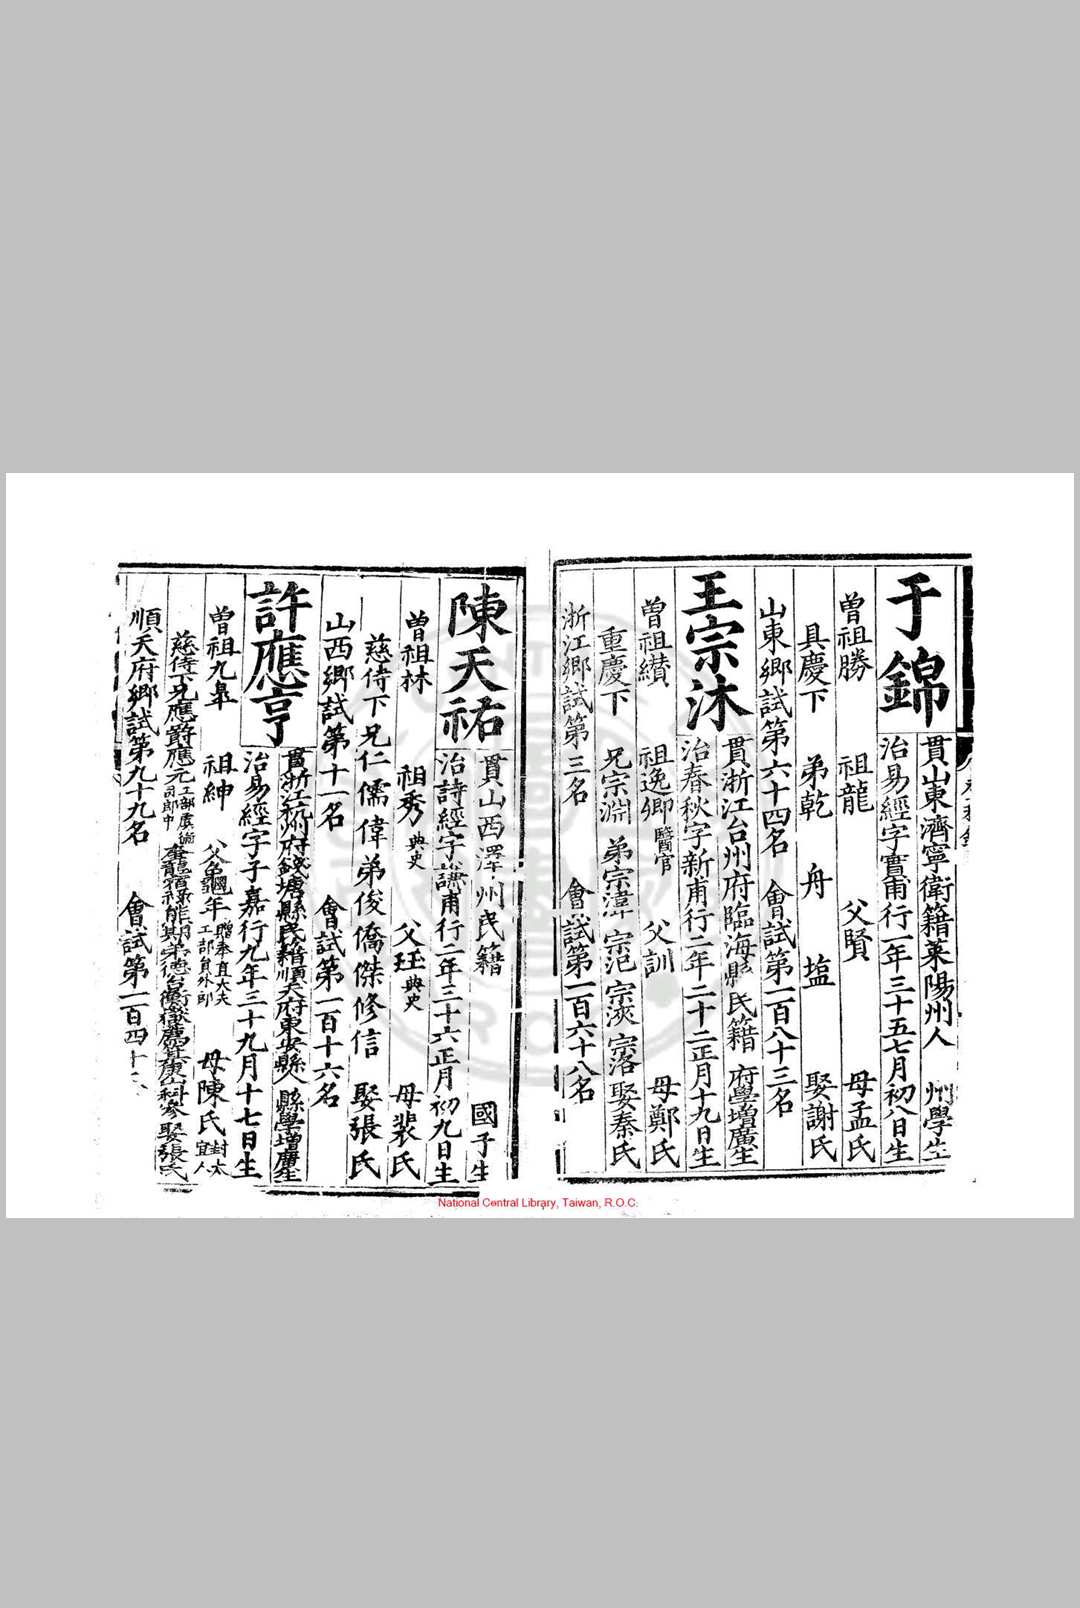 于錦
貫山東濟寧衛籍萊陽州人 州學生
治易經字實甫行一年三十五七月初八日生
曾祖勝 祖龍 父賢 母孟氏
具慶下 弟乾 舟 塩 娶謝氏
山東鄉試第六十四名 會試第一百八十三名
王宗沐
貫浙江台州府臨海縣民籍 府學增廣生
治春秋字新甫行二年二十二正月十九日生
曾祖纘 祖逸卿醫官 父訓 母鄭氏
重慶下 兄宗淵 弟宗湋 宗汜 宗浹 宗洛 娶秦氏
浙江鄉試第三名 會試第一百六十八名
陳天祐
貫山西澤州民籍 國子生
治詩經字謙甫行二年三十六正月初九日生
曾祖林 祖秀典史 父珏典史 母裴氏
慈侍下 兄仁 儒 偉 弟俊 僑 傑 修 信 娶張氏
山西鄉試第十一名 會試第一百十六名
許應亨
貫浙江杭州府錢塘縣民籍順天府東安縣人 縣學增廣生
治易經字子嘉行九年三十九月十七日生
曾祖九臯 祖紳 父龜年贈奉直大夫工部員外郎 母陳氏封太宜人
慈侍下 兄應爵 應元工部虞衡司郎中 娶張氏
順天府鄉試第九十九名 會試第一百四十
National Central Library, Taiwan, R.O.C.